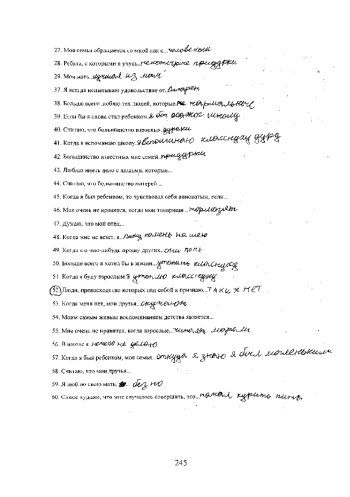 27. Моя семья обращается со мной как с... человеком
28. Ребята, с которыми я учусь, некоторые придурки
29. Моя мать... лучшая из мам
37. Я всегда испытываю удовольствие от...
38. Больше всего люблю тех людей, которые... не нормальные
39. Если бы я снова стал ребенком... я бы поджог школу
40. Считаю, что большинство взрослых... дураки
41. Когда я вспоминаю школу, я вспоминаю классную дуру
42. Большинство известных мне семей... придурки
43. Люблю иметь дело с людьми, которые...
44. Считаю, что большинство матерей...
45. Когда я был ребенком, то чувствовал себя виноватым, если...
46. Мне очень не нравится, когда мои товарищи... тормозят
47. Думаю, что мой отец...
48. Когда мне не везет, я... камень на шею
49. Когда я что-нибудь прошу других, они
50. Больше всего я хотел бы в жизни... утопить класснуюд
51. Когда я буду взрослым, я утоплю классную
52. Люди, превосходство которых над собой я признаю... таких нет
53. Когда меня нет, мои друзья... скучают
54. Моим самым живым воспоминанием детства является...
55. Мне очень не нравится, когда взрослые... читают морали
56. В школе я ничего не делаю
57. Когда я был ребенком, моя семья. откуда я знаю я был маленьким
58. Считаю, что мои друзья...
59. Я люблю свою мать, ... но
60. Самое худшее, что мне случалось совершить, это... начал курить пить.
245